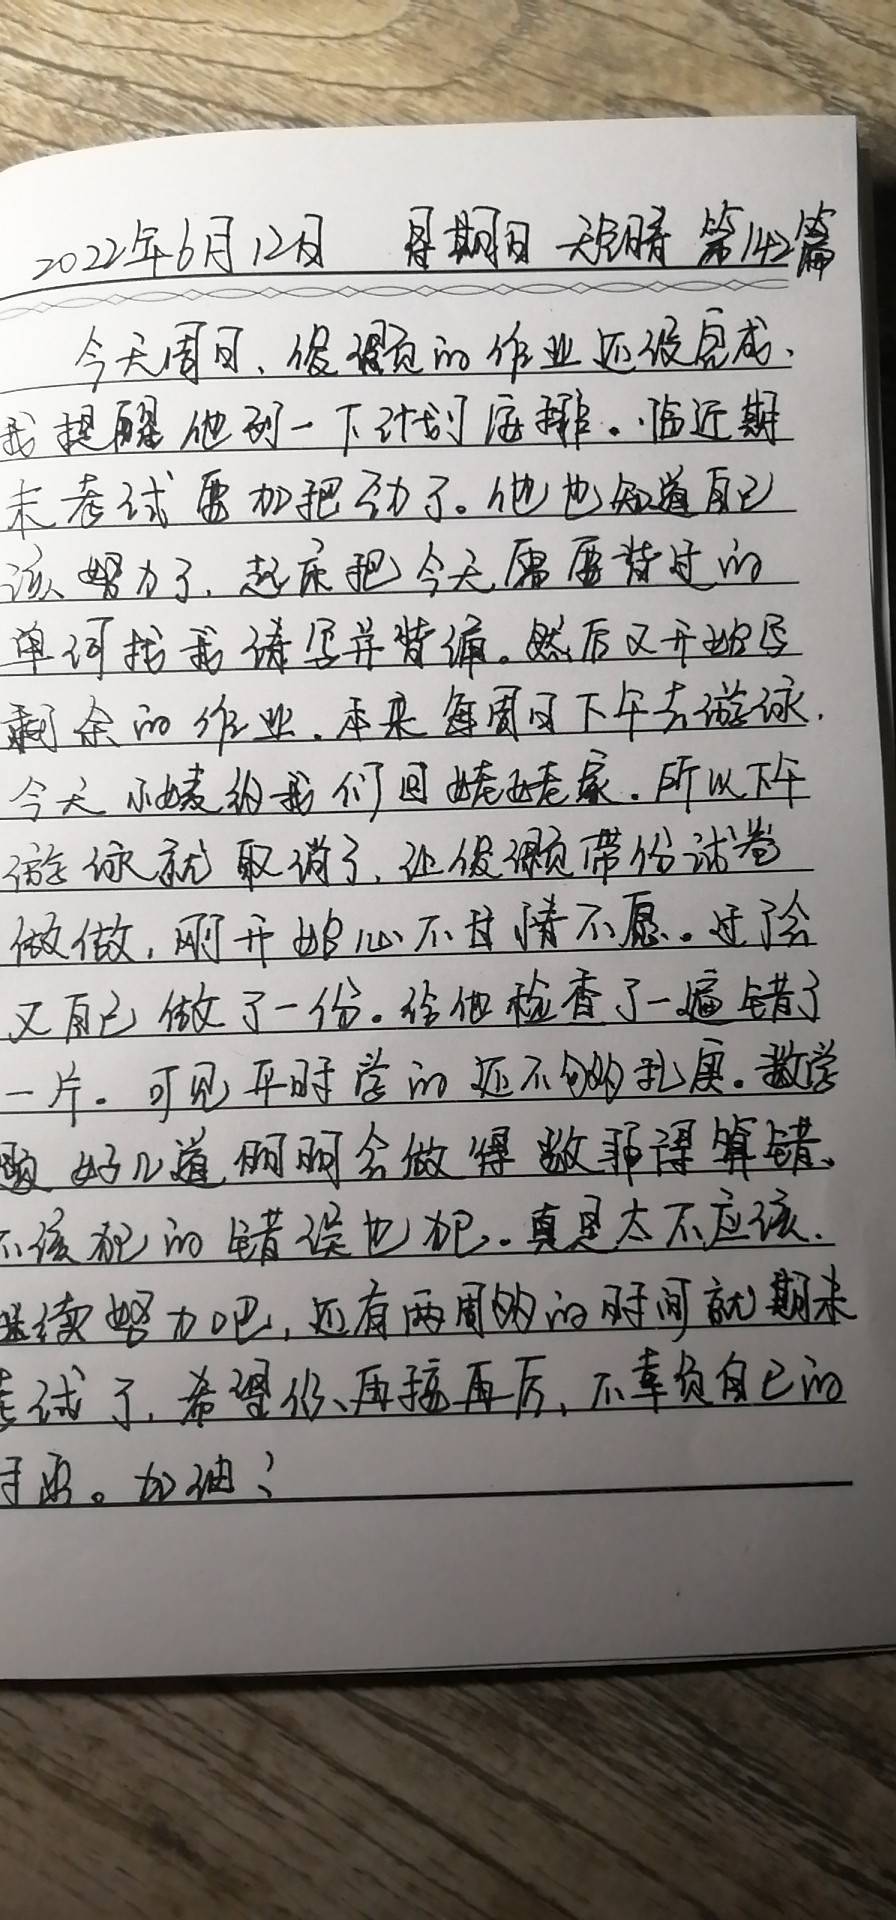 2022年6月12日 星期日 天气晴 第142篇
今天周日、俊颢的作业还没完成、
我提醒他列一下计划安排。临近期
末考试要加把劲了。他也知道自己
该努力了，起床把今天需要背过的
单词找我读写并背诵。然后又开始写
剩余的作业。本来每周日下午去游泳，
今天小姨约我们回姥姥家。所以下午
游泳就取消了，让俊颢带份试卷
做做，刚开始心不甘情不愿。过了会
又自己做了一份。给他检查了一遍错了
一片。可见平时学的还不够扎实。数学
题好几道明明会做得数都得算错、
不该犯的错误也犯。真是太不应该.
继续努力吧，还有两周的时间就期末
考试了，希望你、再接再厉，不辜负自己的
。加油！